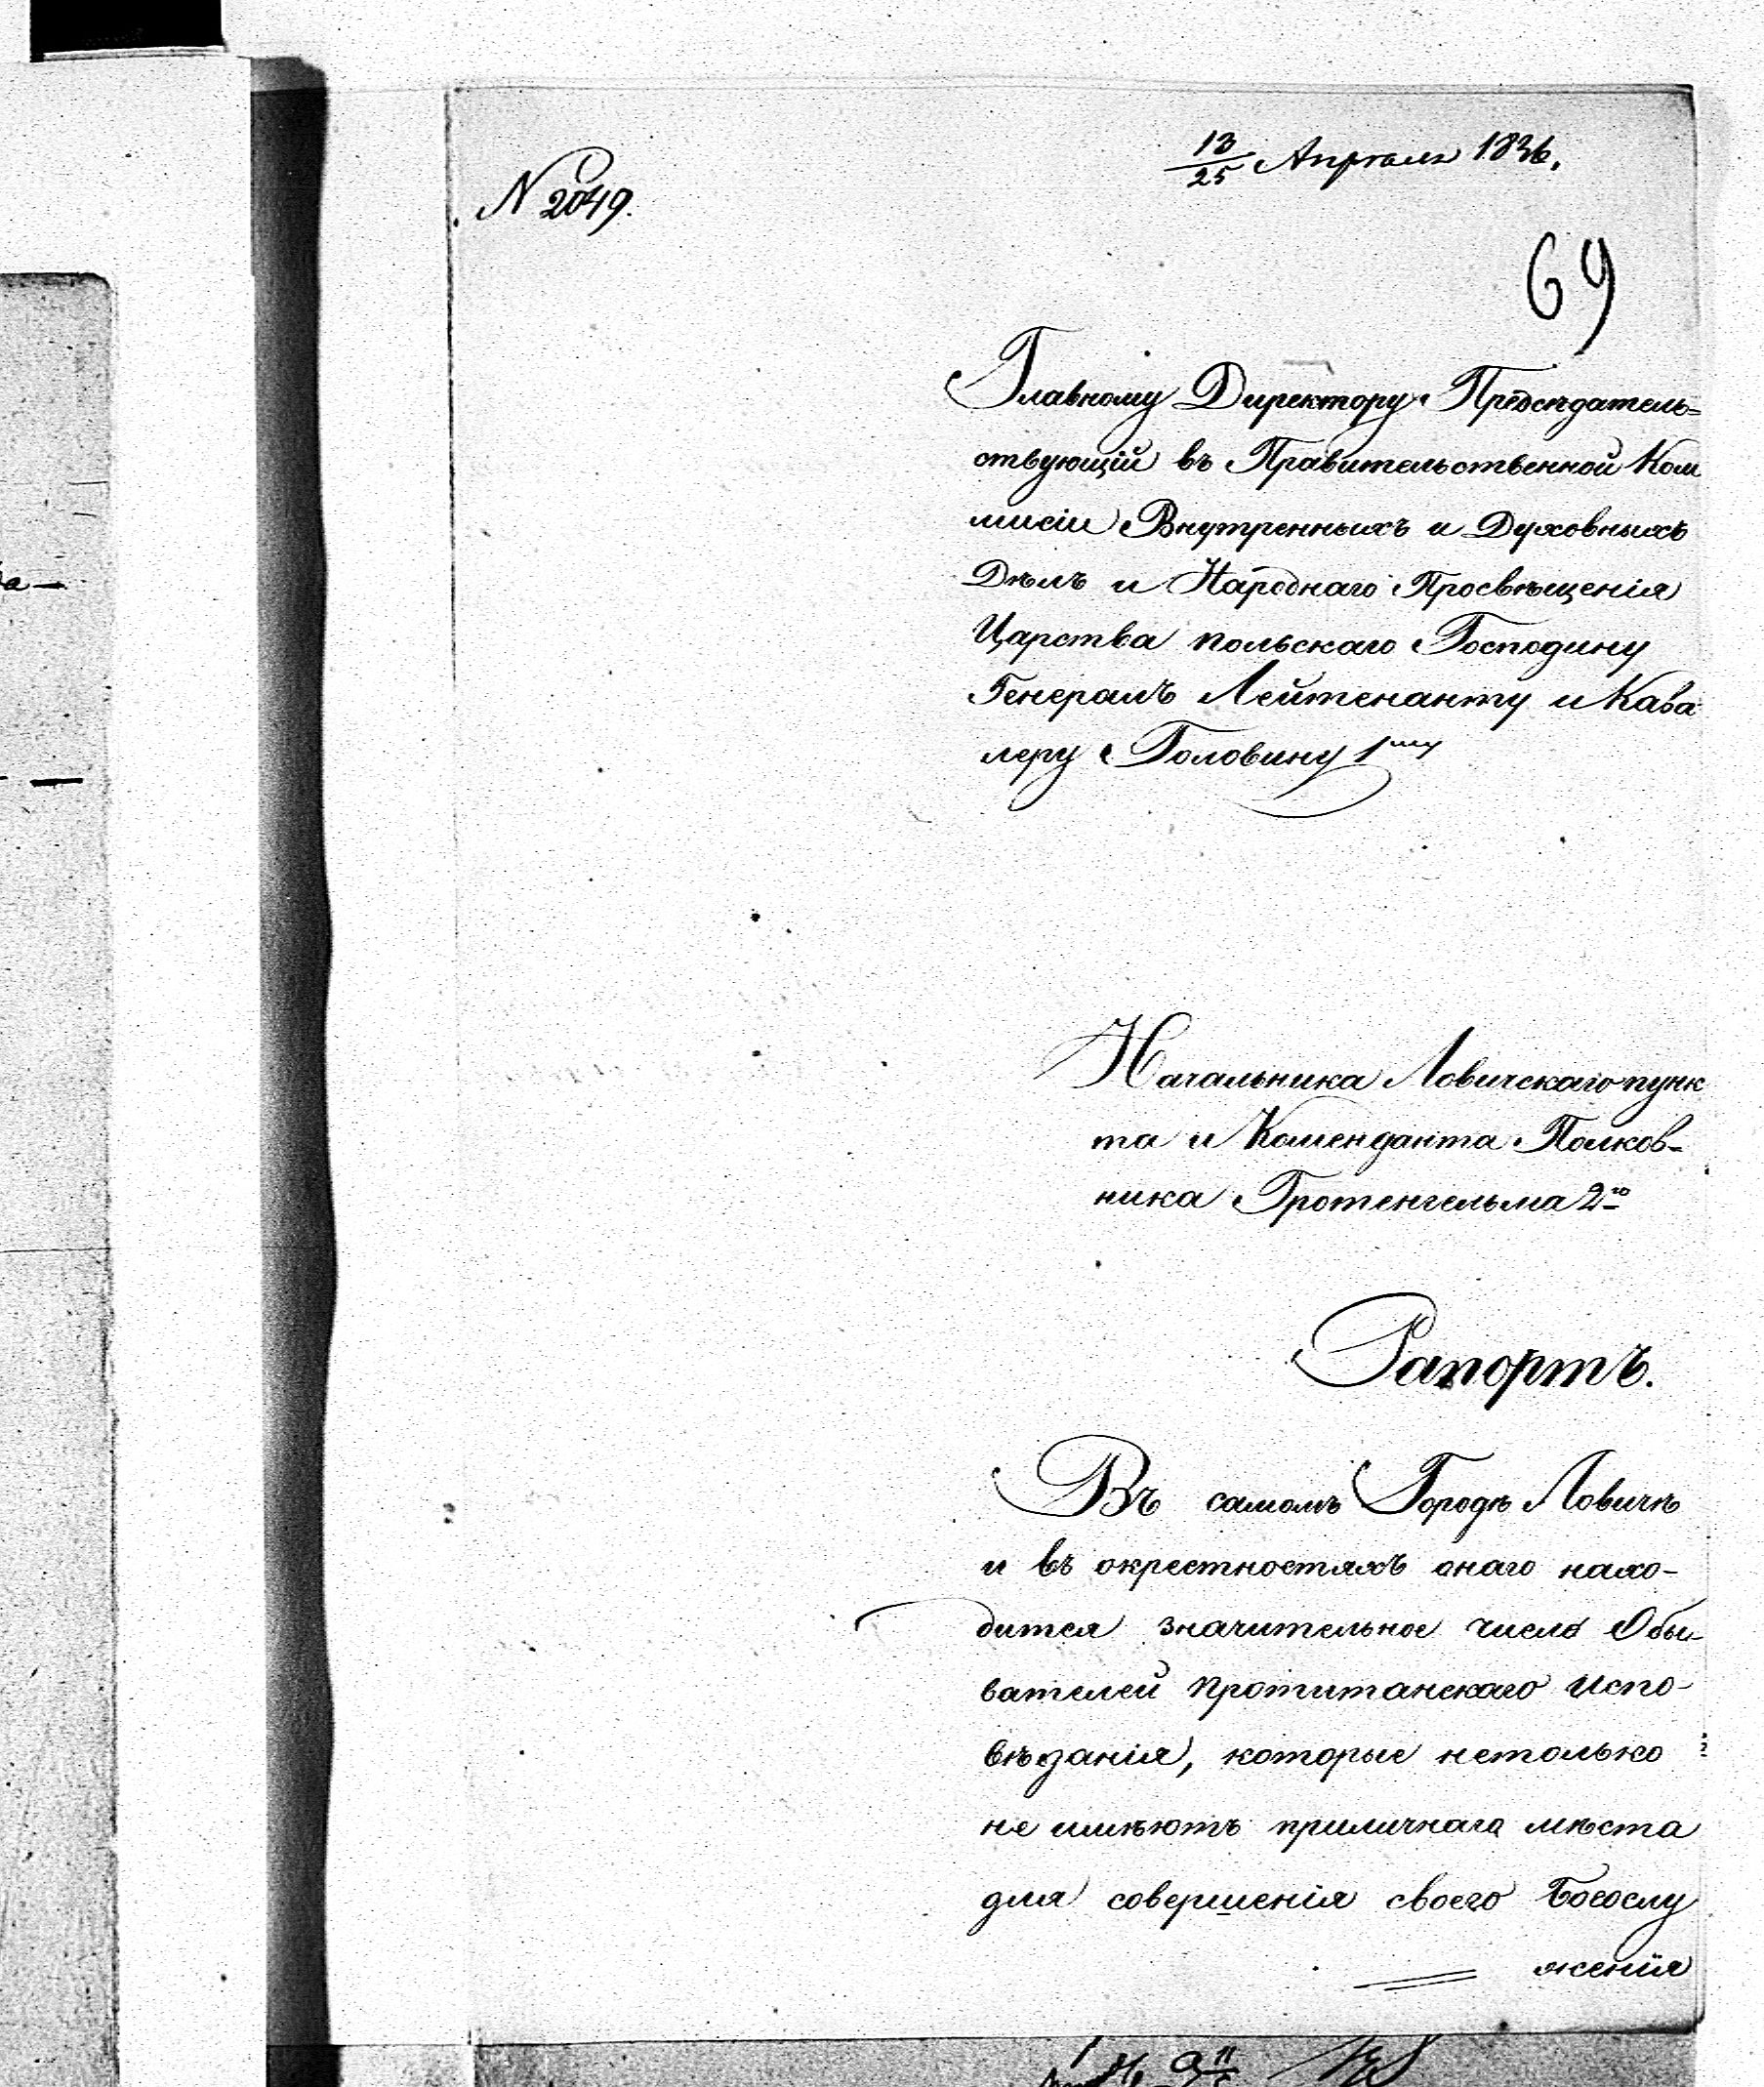 13/25 Апрѣля 1836.
N 2049.
69
Главному Директору Предсѣдатель=
ствующій въ Правительственной Ком
мисіи Внутренныхъ и Духовныхъ
Дѣлъ и Народнаго Просвѣщенія
Царства польскаго Господину
Генералъ Лейтенанту и Кава
леру Головину 1му
Начальника Ловичскаго пунк
та и Коменданта Полков-
ника Гротенгельма 2го
Рапортъ.
Въ самомъ Городѣ Ловичѣ
и въ окрестностяхъ онаго нахо-
дится значительное число Обы-
вателей протитанскаго испо-
вѣданія, которые нетолько
не имѣютъ приличнаго мѣста
для совершенія своего Богослу
женія